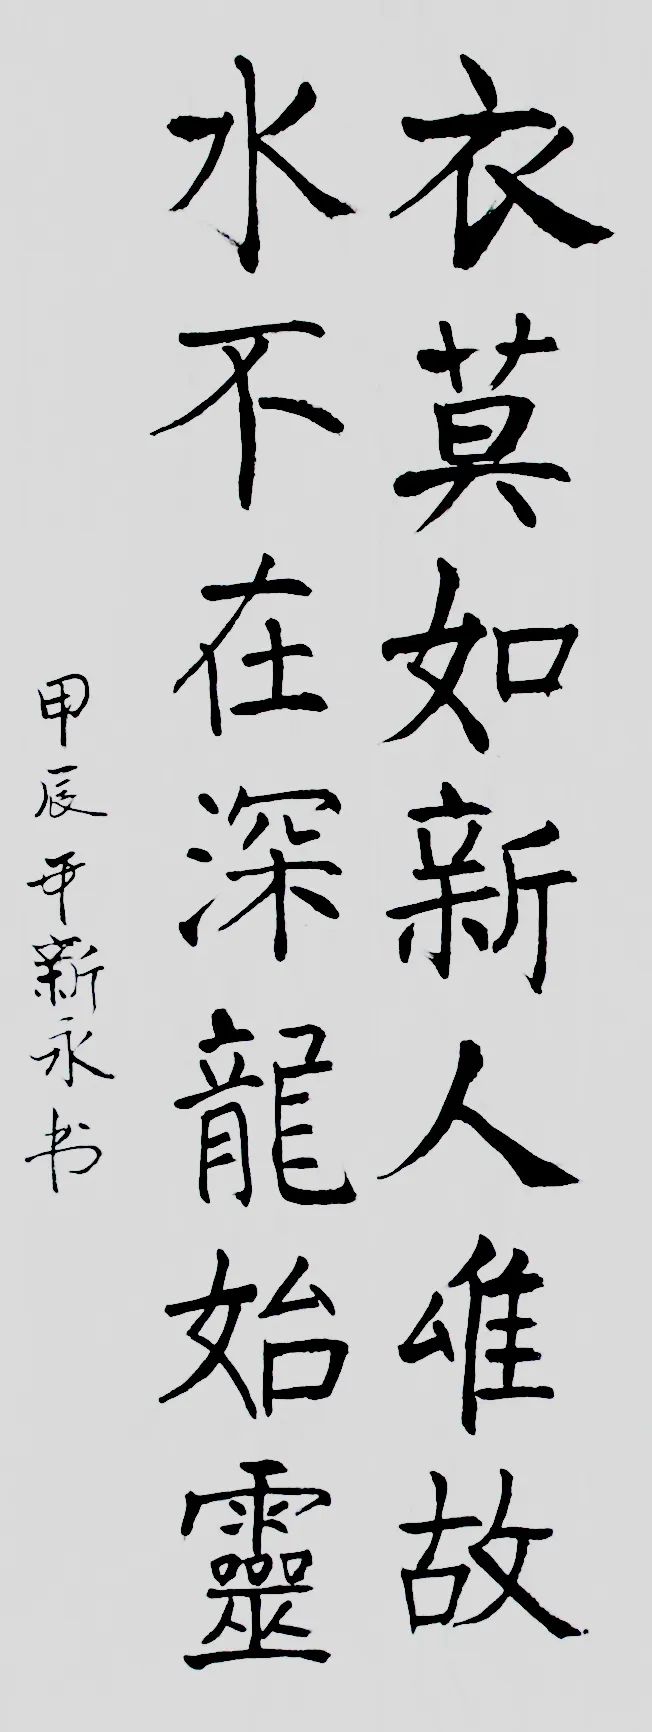 衣莫如新人唯故
水不在深龍始靈
甲辰新永书